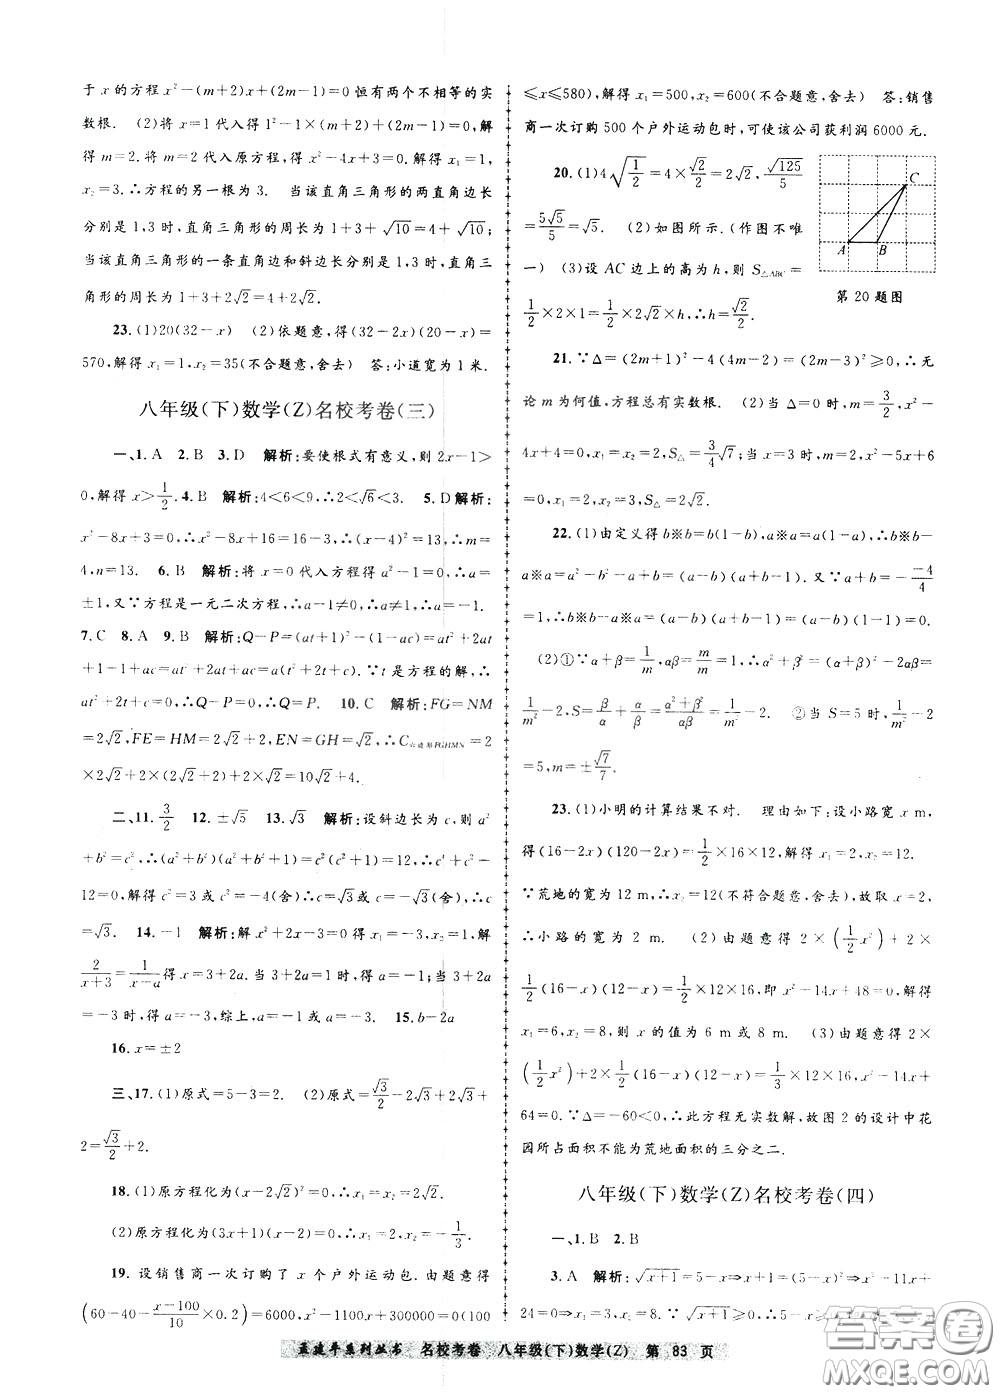 于 x 的方程 x²-(m+2)x+(2m-1)=0 恒有两个不相等的实
数根. (2)将 x=1 代入得 1²-1×(m+2)+(2m-1)=0,解
得 m=2.将 m=2 代入原方程,得 x²-4x+3=0.解得 x₁=1,
x₂=3.∴方程的另一根为 3. 当该直角三角形的两直角边长
分别是 1,3 时,直角三角形的周长为 1+3+√10=4+√10;
当该直角三角形的一条直角边和斜边长分别是 1,3 时,直角三
角形的周长为 1+3+2√2=4+2√2.
23.(1)20(32-x) (2)依题意,得(32-2x)(20-x)=
570,解得 x₁=1,x₂=35(不合题意,舍去) 答:小道宽为 1 米.
八年级(下)数学(Z)名校考卷(三)
一、1. A 2. B 3. D 解析:要使根式有意义,则 2x-1>
0,解得 x>1/2. 4. B 解析:4<6<9,∴2<√6<3. 5. D 解析:
x²-8x+3=0,∴x²-8x+16=13,∴(x-4)²=13,∴m=
4,n=13. 6. B 解析:将 x=0 代入方程得 a²-1=0,∴a=
±1,又∵方程是一元二次方程,∴a-1≠0,∴a≠1,∴a=-1.
7. C 8. A 9. B 解析:Q-P=(at+1)²-(1-ac)=a²t²+2at
+1-1+ac=a²t²+2at+ac=a(at²+2t+c).∵t 是方程的解,∴
at²+2t+c=0,∴Q-P=0,∴Q=P. 10. C 解析:FG=NM
=2√2,FE=HM=2√2+2,EN=GH=√2,∴C六边形FGHMN=2
×2√2+(2√2+2)×2+√2×2=10√2+4.
二、11. 3/2 12. ±√5 13. √3 解析:设斜边长为 c,则 a²
+b²=c²,∴(a²+b²)(a²+b²+1)=c²(c²+1)=12,∴c⁴+c²-
12=0,解得 c²=3 或 c²=-4(舍)∴c=√3或 c=-√3(舍),∴c
=√3. 14. -1 解析:解 x²+2x-3=0 得 x₁=-3,x₂=1,解
2/(x+3)=1/(x-a)得 x=3+2a.当 3+2a=1 时,得 a=-1;当 3+2a
=-3 时,得 a=-3,综上,a=-1 或 a=-3. 15. b-2a
16. x=±2
三、17.(1)原式=5-3=2. (2)原式=√3/2-2√3+2√3+
2=√3/2+2.
18.(1)原方程化为(x-2√2)²=0,∴x₁=x₂=2√2.
(2)原方程化为(3x+1)(x-2)=0,∴x₁=2,x₂=-1/3.
19. 设销售商一次订购了 x 个户外运动包.由题意得
(60-40-(x-100)/10×0.2)=6000,x²-1100x+300000=0(100
≤x≤580),解得 x₁=500,x₂=600(不合题意,舍去) 答:销售
商一次订购 500 个户外运动包时,可使该公司获利润 6000 元.
20.(1)4√(1/2)=4×√2/2=2√2,√125/5
=5√5/5=√5. (2)如图所示.(作图不唯
一) (3)设 AC 边上的高为 h,则 S△ABC=
1/2×2×1=1/2×2√2×h,∴h=√2/2.
A
B
C
第 20 题图
21. ∵Δ=(2m+1)²-4(4m-2)=(2m-3)²≥0,∴无
论 m 为何值,方程总有实数根. (2)当 Δ=0 时,m=3/2,x²-
4x+4=0,∴x₁=x₂=2,S△=3/4√7;当 x=3 时,x²-5x+6
=0,∴x₁=2,x₂=3,S△=2√2.
22.(1)由定义得 b※b=b(1-b),a※a=a(1-a),∴b
※b-a※a=a²-b²-a+b=(a-b)(a+b-1).又∵a+b=-(-4)/4
=1,∴b※b-a※a=(a-b)(a+b-1)=(a-b)(1-1)=0.
(2)①∵α+β=1/m,αβ=m/m=1,∴α²+β²=(α+β)²-2αβ=
1/m²-2,S=β/α+α/β=(α²+β²)/αβ=1/m²-2. ②当 S=5 时,1/m²-2
=5,m=±√7/7.
23.(1)小明的计算结果不对. 理由如下:设小路宽 x m,
得(16-2x)(120-2x)=1/2×16×12,解得 x₁=2,x₂=12.
∵荒地的宽为 12 m,∴x=12(不符合题意,舍去),故取 x=2.
∴小路的宽为 2 m. (2)由题意得 2×(1/2x²)+2×
1/2(16-x)(12-x)=1/2×12×16,即 x²-14x+48=0,解得
x₁=6,x₂=8,则 x 的值为 6 m 或 8 m. (3)由题意得 2×
(1/2x²)+2×1/2(16-x)(12-x)=1/3×16×12,∴x²-14x+
64=0.∵Δ=-60<0,∴此方程无实数解,故图 2 的设计中花
园所占面积不能为荒地面积的三分之二.
八年级(下)数学(Z)名校考卷(四)
一、1. B 2. B
3. A 解析:√(x+1)=5-x⇒x+1=(5-x)²⇒x²-11x+
24=0⇒x₁=3,x₂=8.∵√(x+1)≥0⇒5-x≥0⇒x≤
孟建平系列丛书 名校考卷 八年级(下)数学(Z) 第 83 页
答案圈
MXQE.COM